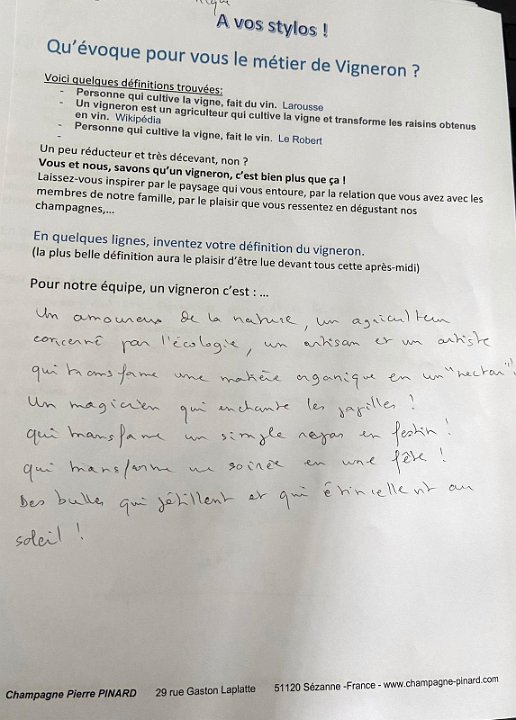 A vos stylos !
Qu'évoque pour vous le métier de Vigneron ?
Voici quelques définitions trouvées:
- Personne qui cultive la vigne, fait du vin. Larousse
- Un vigneron est un agriculteur qui cultive la vigne et transforme les raisins obtenus
en vin. Wikipédia
- Personne qui cultive la vigne, fait le vin. Le Robert
-
Un peu réducteur et très décevant, non ?
Vous et nous, savons qu'un vigneron, c'est bien plus que ça !
Laissez-vous inspirer par le paysage qui vous entoure, par la relation que vous avez avec les
membres de notre famille, par le plaisir que vous ressentez en dégustant nos
champagnes,...
En quelques lignes, inventez votre définition du vigneron.
(la plus belle définition aura le plaisir d'être lue devant tous cette après-midi)
Pour notre équipe, un vigneron c'est : ...
Un amoureux de la nature, un agriculteur
concerné par l'écologie, un artisan et un artiste
qui transforme une matière organique en un "nectar"!
Un magicien qui enchante les papilles !
qui transforme un simple repas en festin !
qui transforme une soirée en une fête !
Des bulles qui pétillent et qui étincellent au
soleil !
Champagne Pierre PINARD 29 rue Gaston Laplatte 51120 Sézanne -France - www.champagne-pinard.com